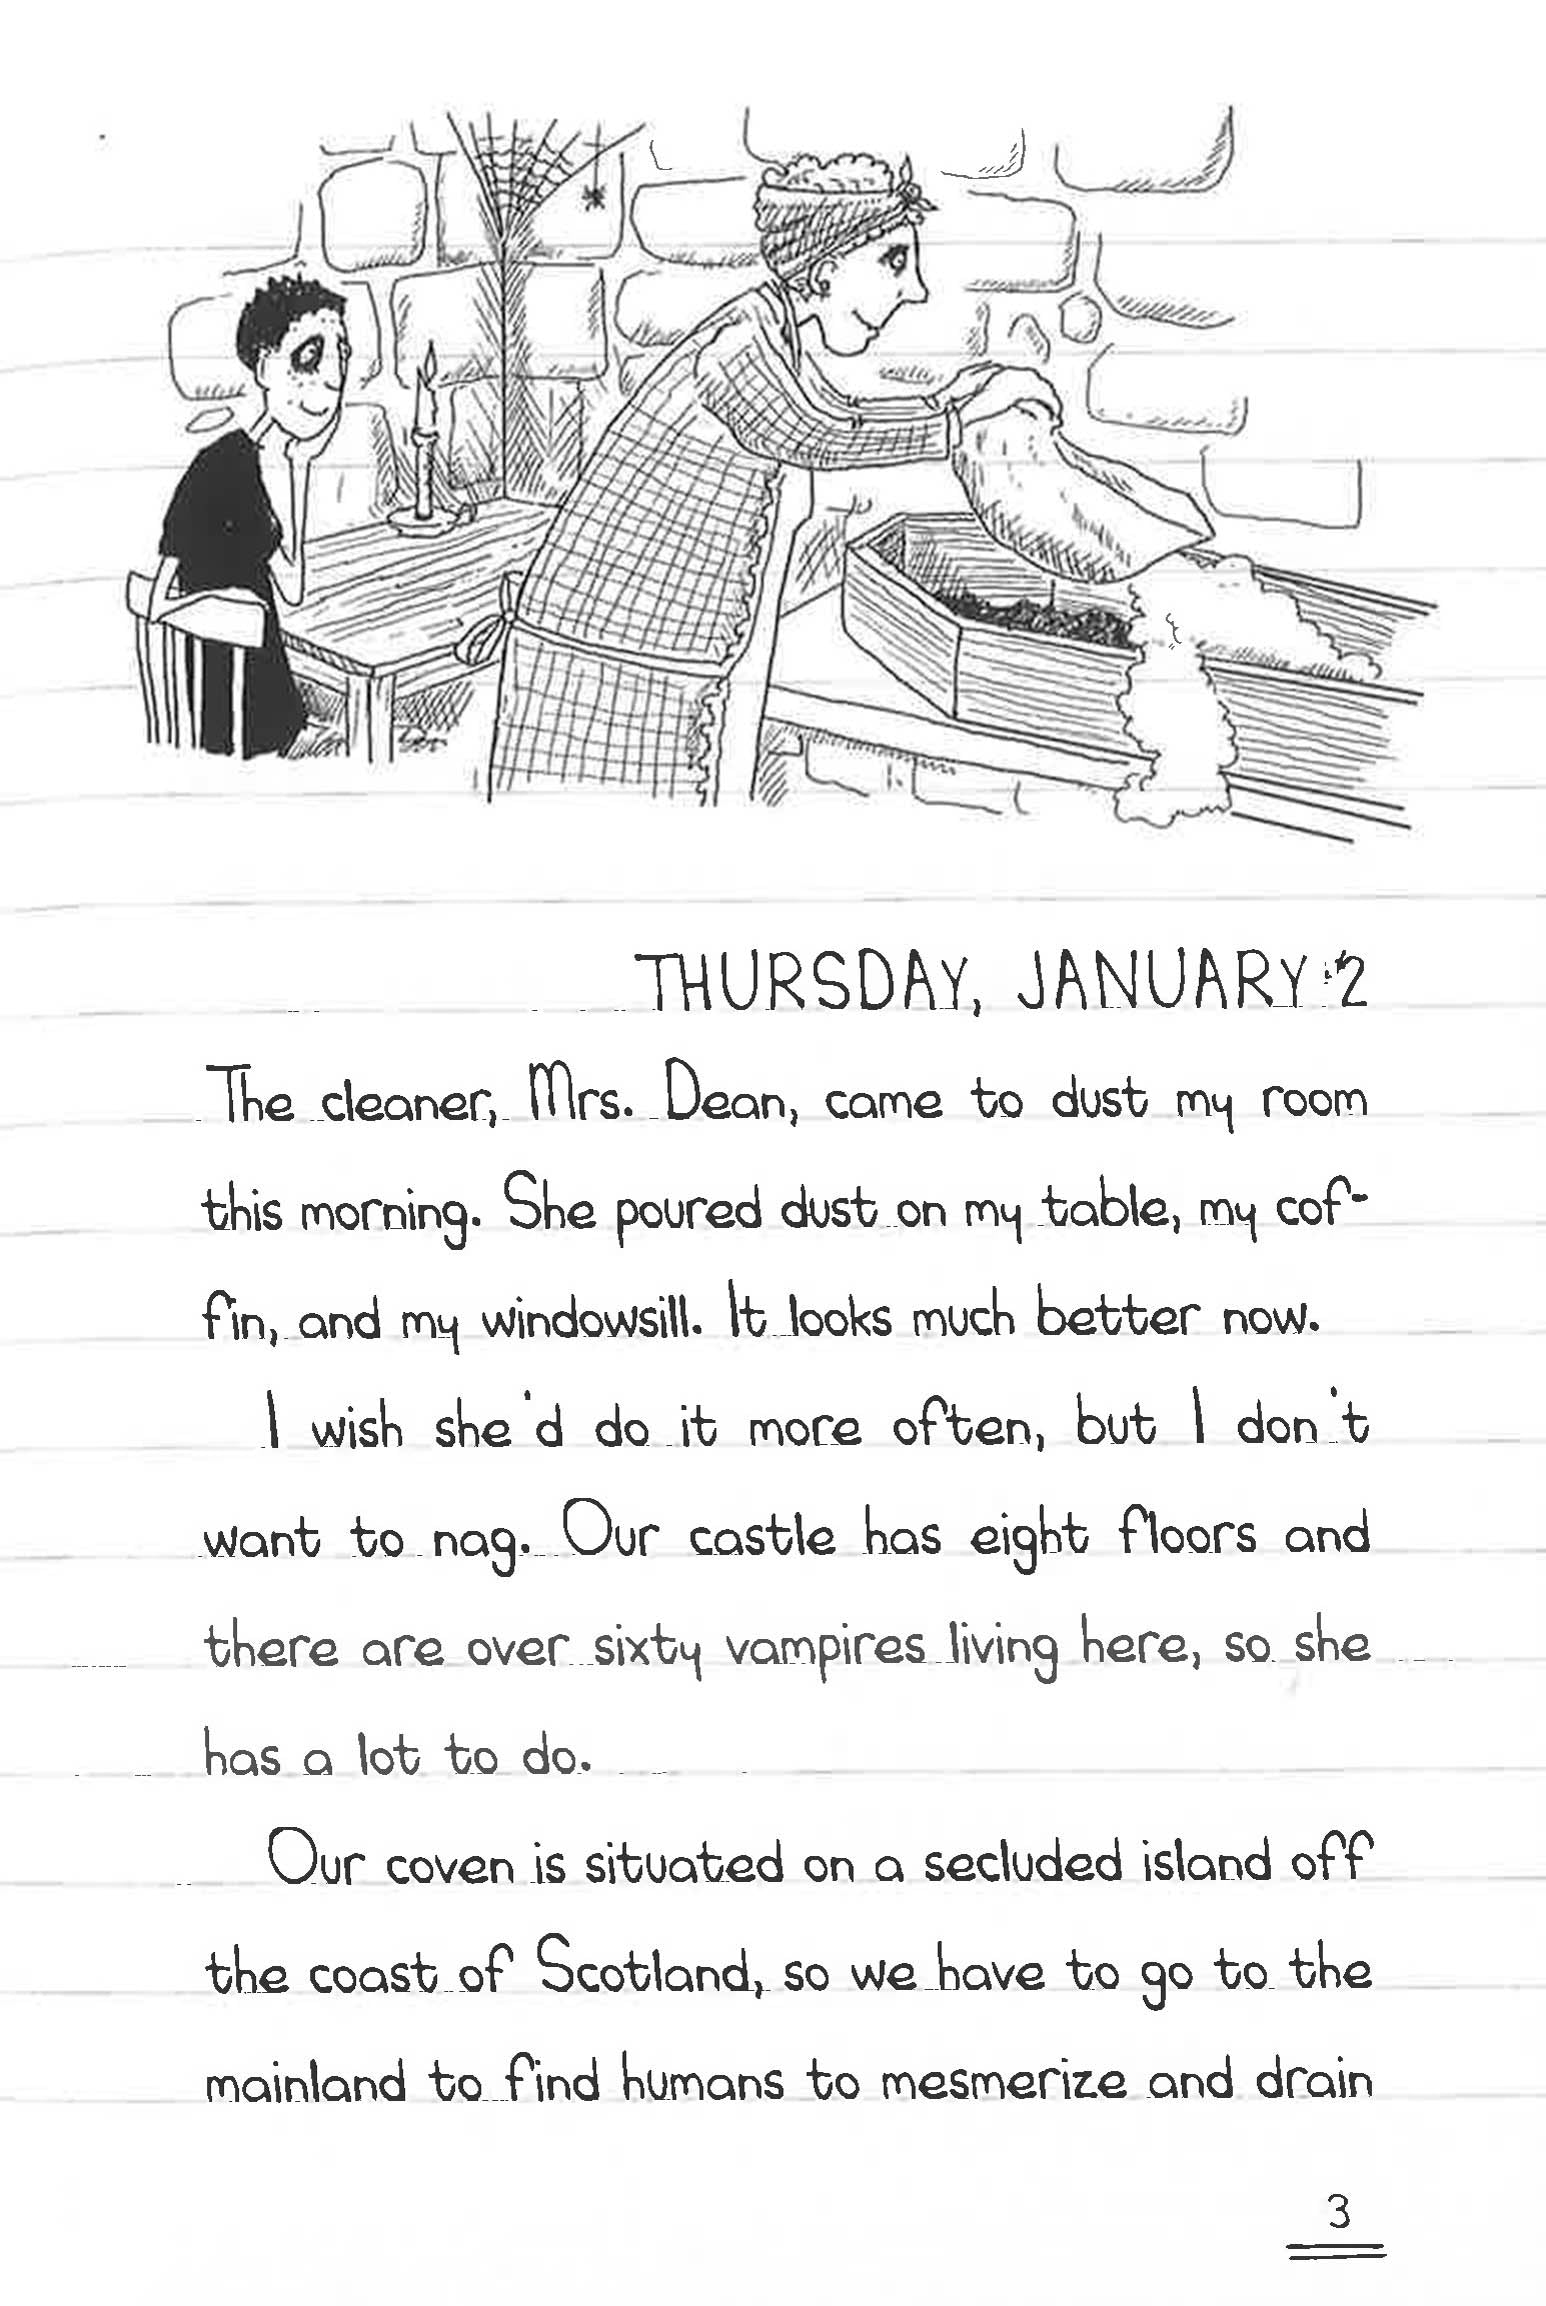 THURSDAY, JANUARY 2
The cleaner, Mrs. Dean, came to dust my room
this morning. She poured dust on my table, my cof-
fin, and my windowsill. It looks much better now.
I wish she'd do it more often, but I don't
want to nag. Our castle has eight floors and
there are over sixty vampires living here, so she
has a lot to do.
Our coven is situated on a secluded island off
the coast of Scotland, so we have to go to the
mainland to find humans to mesmerize and drain
3